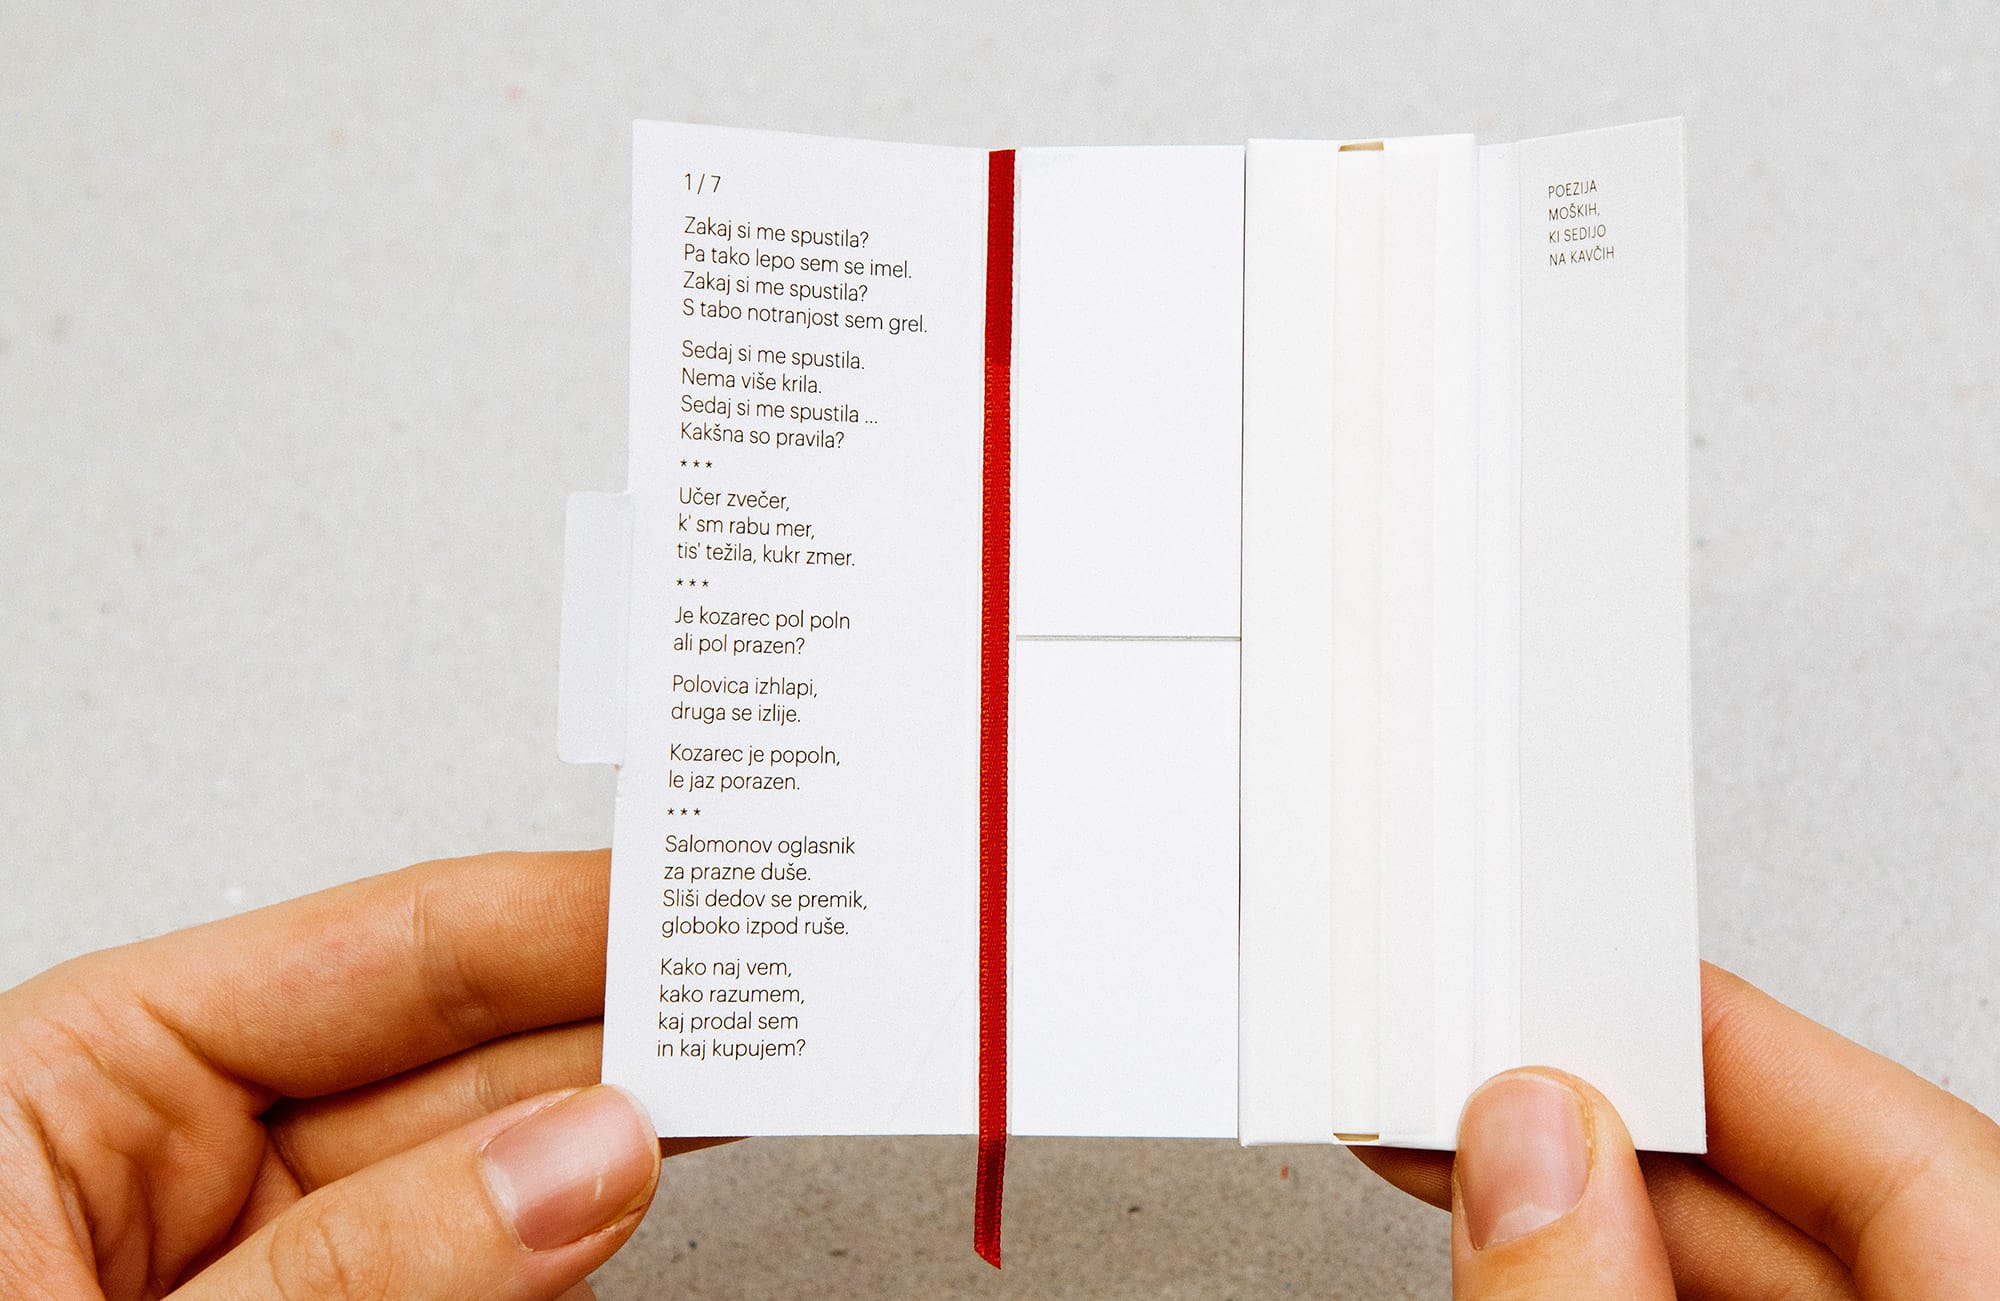 1 / 7
Zakaj si me spustila?
Pa tako lepo sem se imel.
Zakaj si me spustila?
S tabo notranjost sem grel.
Sedaj si me spustila.
Nema više krila.
Sedaj si me spustila ...
Kakšna so pravila?
* * *
Učer zvečer,
k' sm rabu mer,
tis' težila, kukr zmer.
* * *
Je kozarec pol poln
ali pol prazen?
Polovica izhlapi,
druga se izlije.
Kozarec je popoln,
le jaz porazen.
* * *
Salomonov oglasnik
za prazne duše.
Sliši dedov se premik,
globoko izpod ruše.
Kako naj vem,
kako razumem,
kaj prodal sem
in kaj kupujem?
POEZIJA
MOŠKIH,
KI SEDIJO
NA KAVČIH